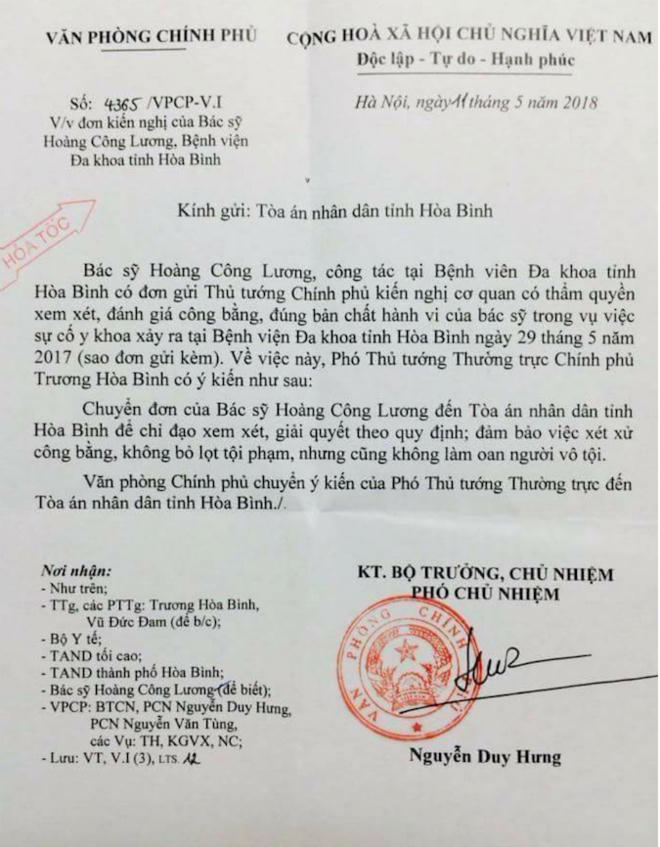 VĂN PHÒNG CHÍNH PHỦ
CỘNG HOÀ XÃ HỘI CHỦ NGHĨA VIỆT NAM
Độc lập - Tự do - Hạnh phúc
Số: 4365 /VPCP-V.I
V/v đơn kiến nghị của Bác sỹ
Hoàng Công Lương, Bệnh viện
Đa khoa tỉnh Hòa Bình
Hà Nội, ngày 11 tháng 5 năm 2018
HỎA TỐC
Kính gửi: Tòa án nhân dân tỉnh Hòa Bình
Bác sỹ Hoàng Công Lương, công tác tại Bệnh viên Đa khoa tỉnh
Hòa Bình có đơn gửi Thủ tướng Chính phủ kiến nghị cơ quan có thẩm quyền
xem xét, đánh giá công bằng, đúng bản chất hành vi của bác sỹ trong vụ việc
sự cố y khoa xảy ra tại Bệnh viện Đa khoa tỉnh Hòa Bình ngày 29 tháng 5 năm
2017 (sao đơn gửi kèm). Về việc này, Phó Thủ tướng Thường trực Chính phủ
Trương Hòa Bình có ý kiến như sau:
Chuyển đơn của Bác sỹ Hoàng Công Lương đến Tòa án nhân dân tỉnh
Hòa Bình để chỉ đạo xem xét, giải quyết theo quy định; đảm bảo việc xét xử
công bằng, không bỏ lọt tội phạm, nhưng cũng không làm oan người vô tội.
Văn phòng Chính phủ chuyển ý kiến của Phó Thủ tướng Thường trực đến
Tòa án nhân dân tỉnh Hòa Bình./.
Nơi nhận:
- Như trên;
- TTg, các PTTg: Trương Hòa Bình,
Vũ Đức Đam (để b/c);
- Bộ Y tế;
- TAND tối cao;
- TAND thành phố Hòa Bình;
- Bác sỹ Hoàng Công Lương (để biết);
- VPCP: BTCN, PCN Nguyễn Duy Hưng,
PCN Nguyễn Văn Tùng,
các Vụ: TH, KGVX, NC;
- Lưu: VT, V.I (3), LTS. 12
KT. BỘ TRƯỞNG, CHỦ NHIỆM
PHÓ CHỦ NHIỆM
VĂN PHÒNG CHÍNH PHỦ
Nguyễn Duy Hưng